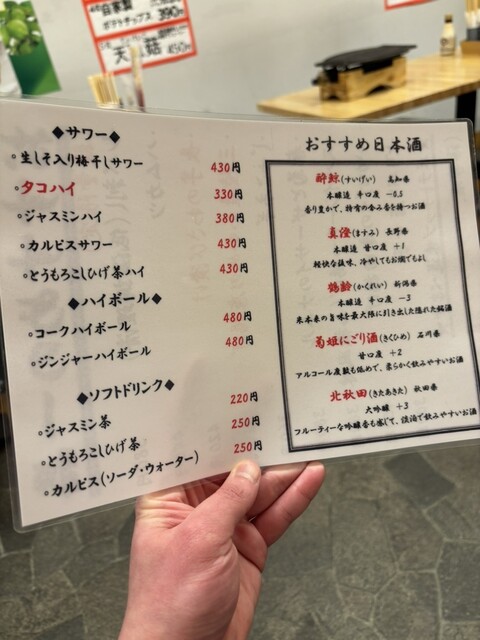 自家製
ポテトチップス 390円
450円
◆サワー◆
◦生しそ入り梅干しサワー 430円
◦タコハイ 330円
◦ジャスミンハイ 380円
◦カルピスサワー 430円
◦とうもろこしひげ茶ハイ 430円
◆ハイボール◆
◦コークハイボール 480円
◦ジンジャーハイボール 480円
◆ソフトドリンク◆
◦ジャスミン茶 220円
◦とうもろこしひげ茶 250円
◦カルピス(ソーダ・ウォーター) 250円
おすすめ日本酒
酔鯨(すいげい) 高知県
本醸造 辛口度 −0.5
香り豊かで、特有の含み香を持つお酒
真澄(ますみ) 長野県
本醸造 甘口度 +1
軽快な旨味、冷やしてもお燗でもよし
鶴齢(かくれい) 新潟県
本醸造 辛口度 −3
米本来の旨味を最大限に引き出した隠れた銘酒
菊姫にごり酒(きくひめ) 石川県
甘口度 +2
アルコール度数も低めで、柔らかく飲みやすいお酒
北秋田(きたあきた) 秋田県
大吟醸 +3
フルーティーな吟醸香も感じて、淡泊で飲みやすいお酒